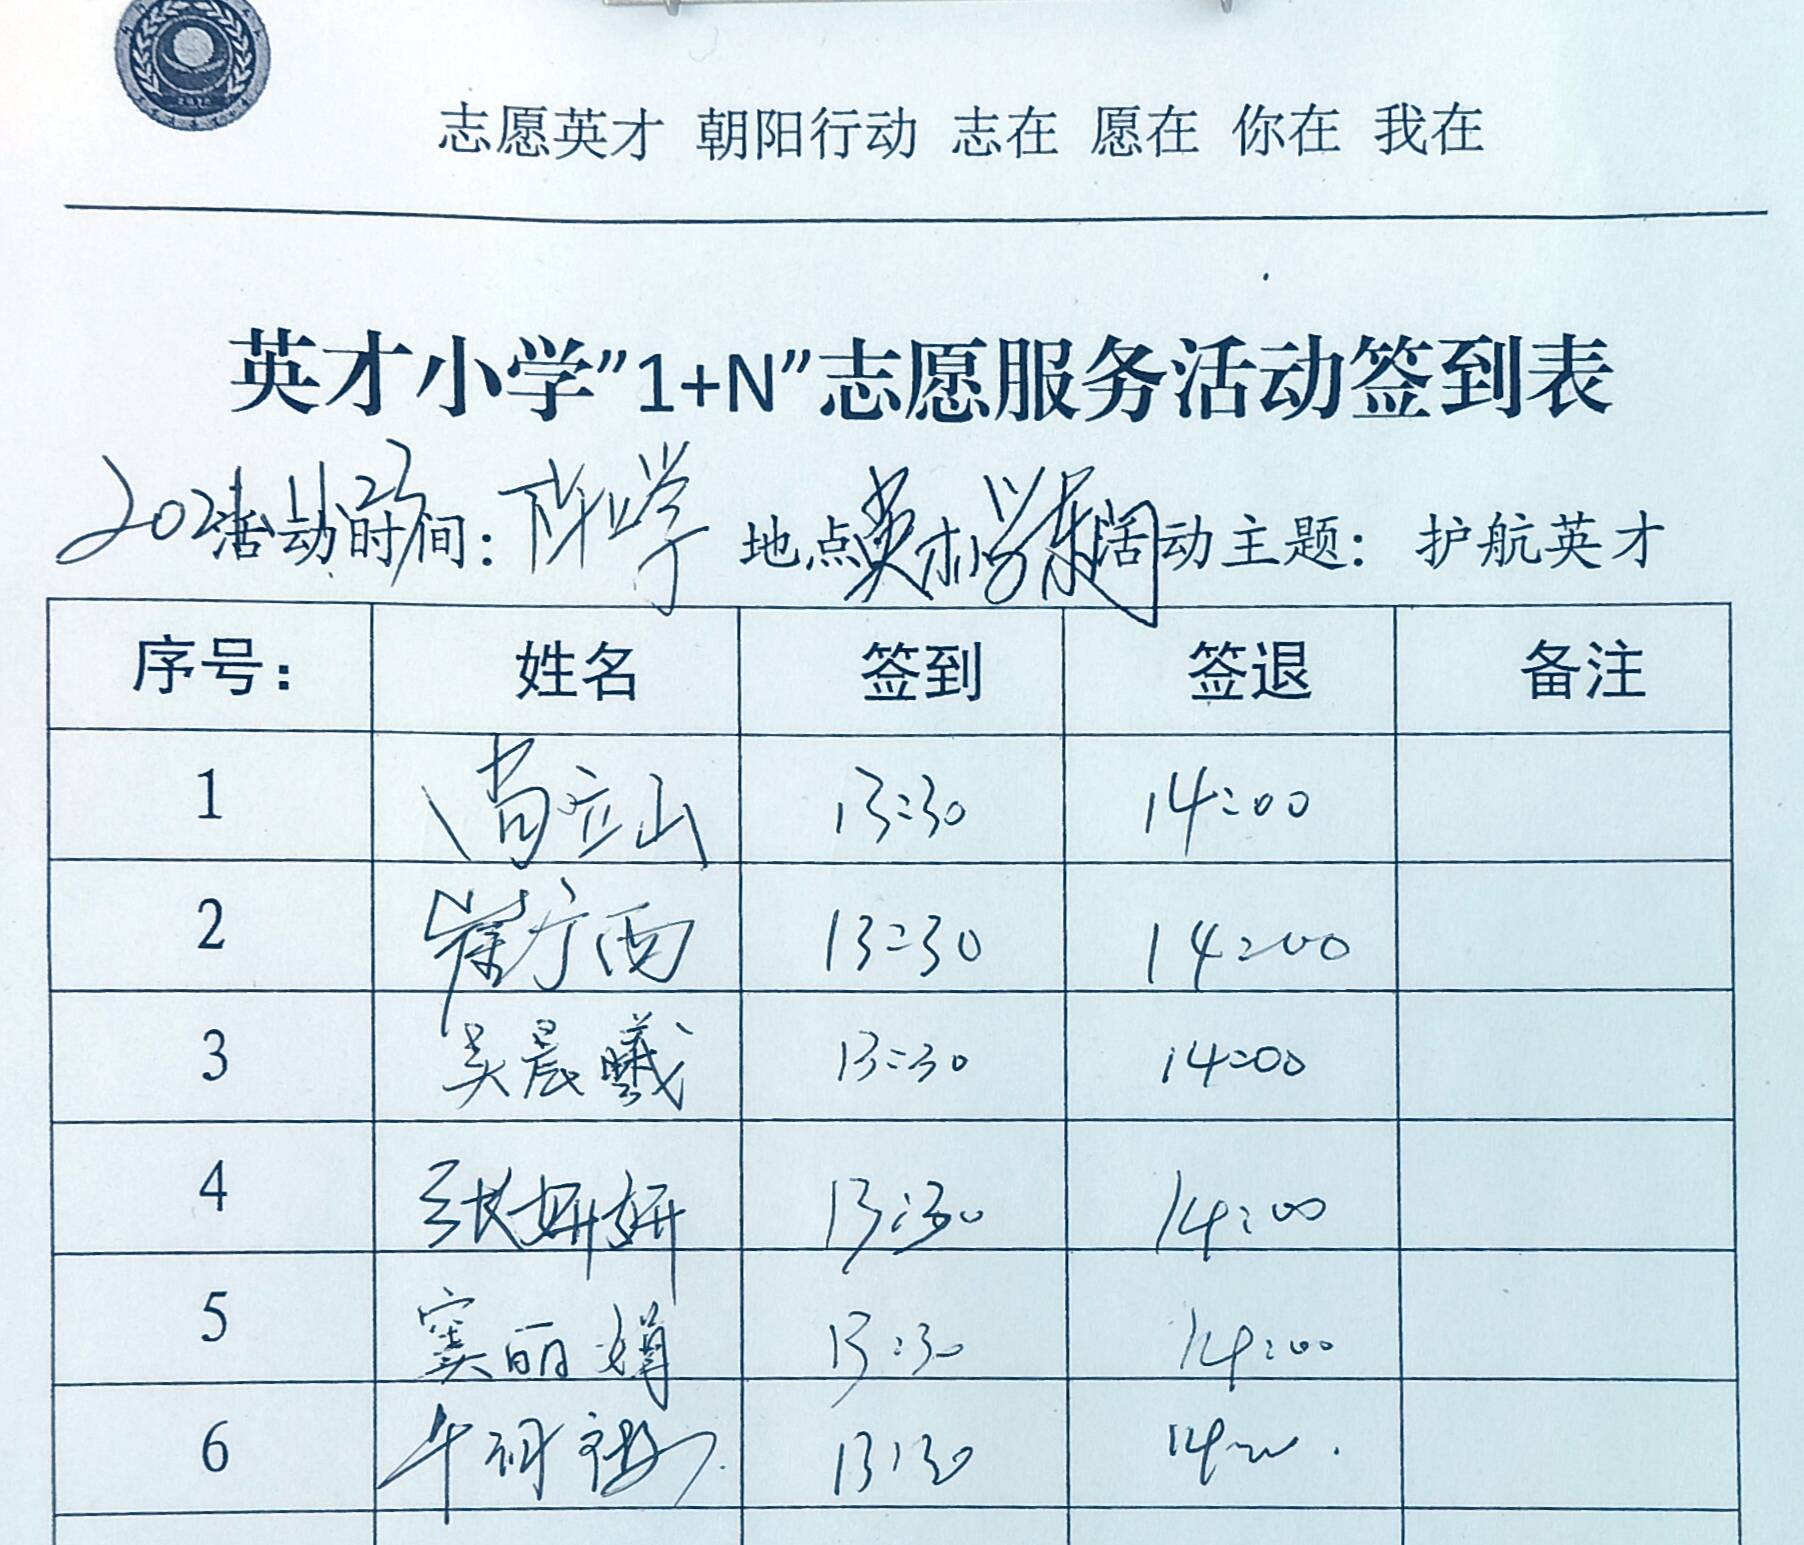 志愿英才 朝阳行动 志在 愿在 你在 我在
英才小学”1+N”志愿服务活动签到表
活动时间: 下午上学 地点英才小学东门 活动主题: 护航英才
序号: 姓名 签到 签退 备注
1 立山 13:30 14:00
2 崔广西 13:30 14:00
3 吴晨曦 13:30 14:00
4 张妍妍 13:30 14:00
5 窦丽娟 13:30 14:00
6 13:30 14:00